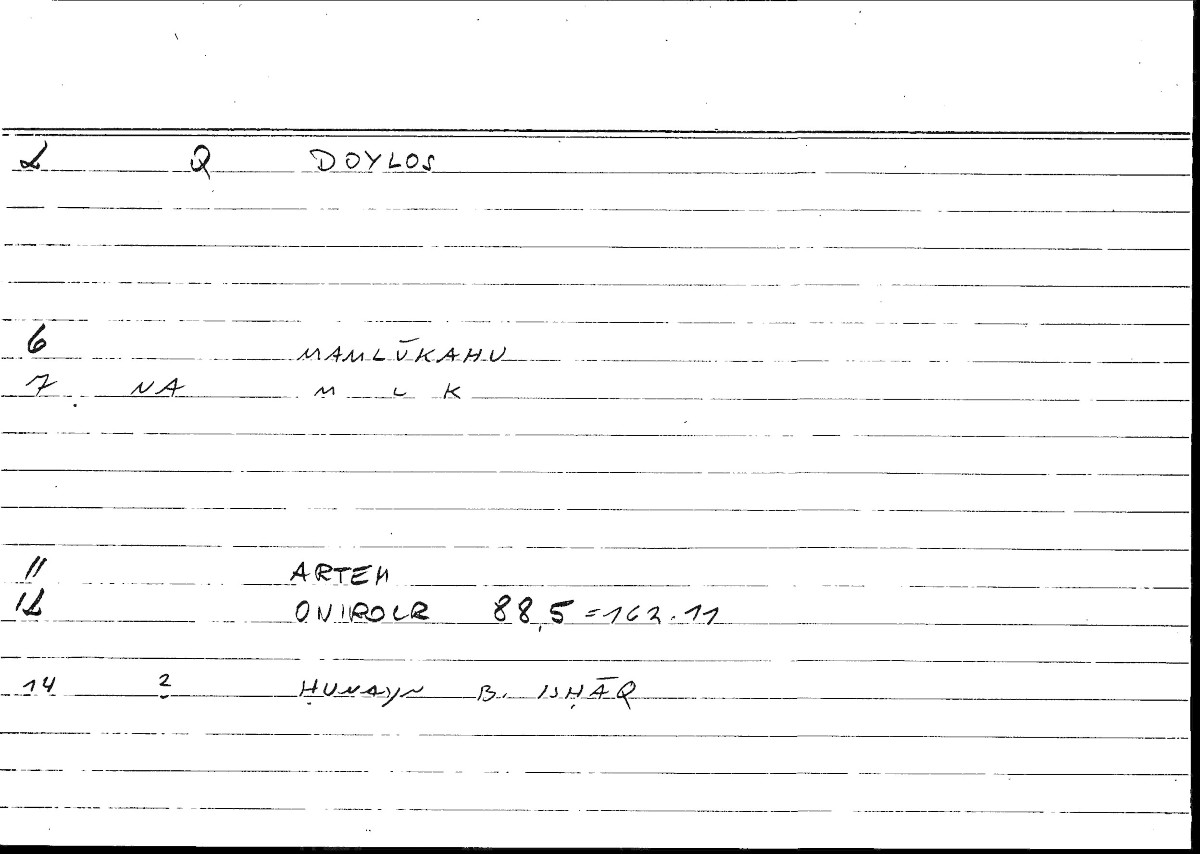 2 Q DOYLOS
6 MAMLŪKAHU
7 NA M L K
11 ARTEM
12 ONIROCR 88,5 = 162.11
14 2 ḤUNAYN B. ISḤĀQ